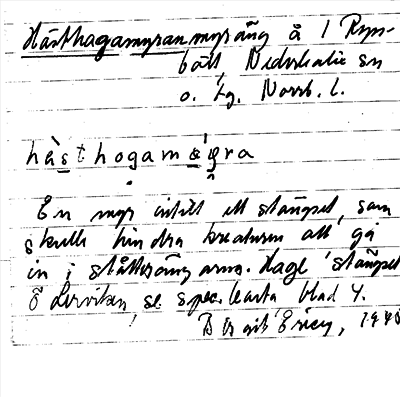 Hästhagamyran myräng å 1 Ryss-
bält, Nederkalix sn
o. tg. Norrb. l.
hàsthogamy̨ra
En myr intill ett stängsel, som
skulle hindra kreaturen att gå
in i slåtterängarna. Hage, stängsel
Ö Lerviken, se spec. karta, blad 4.
Birgit Ericz, 1940